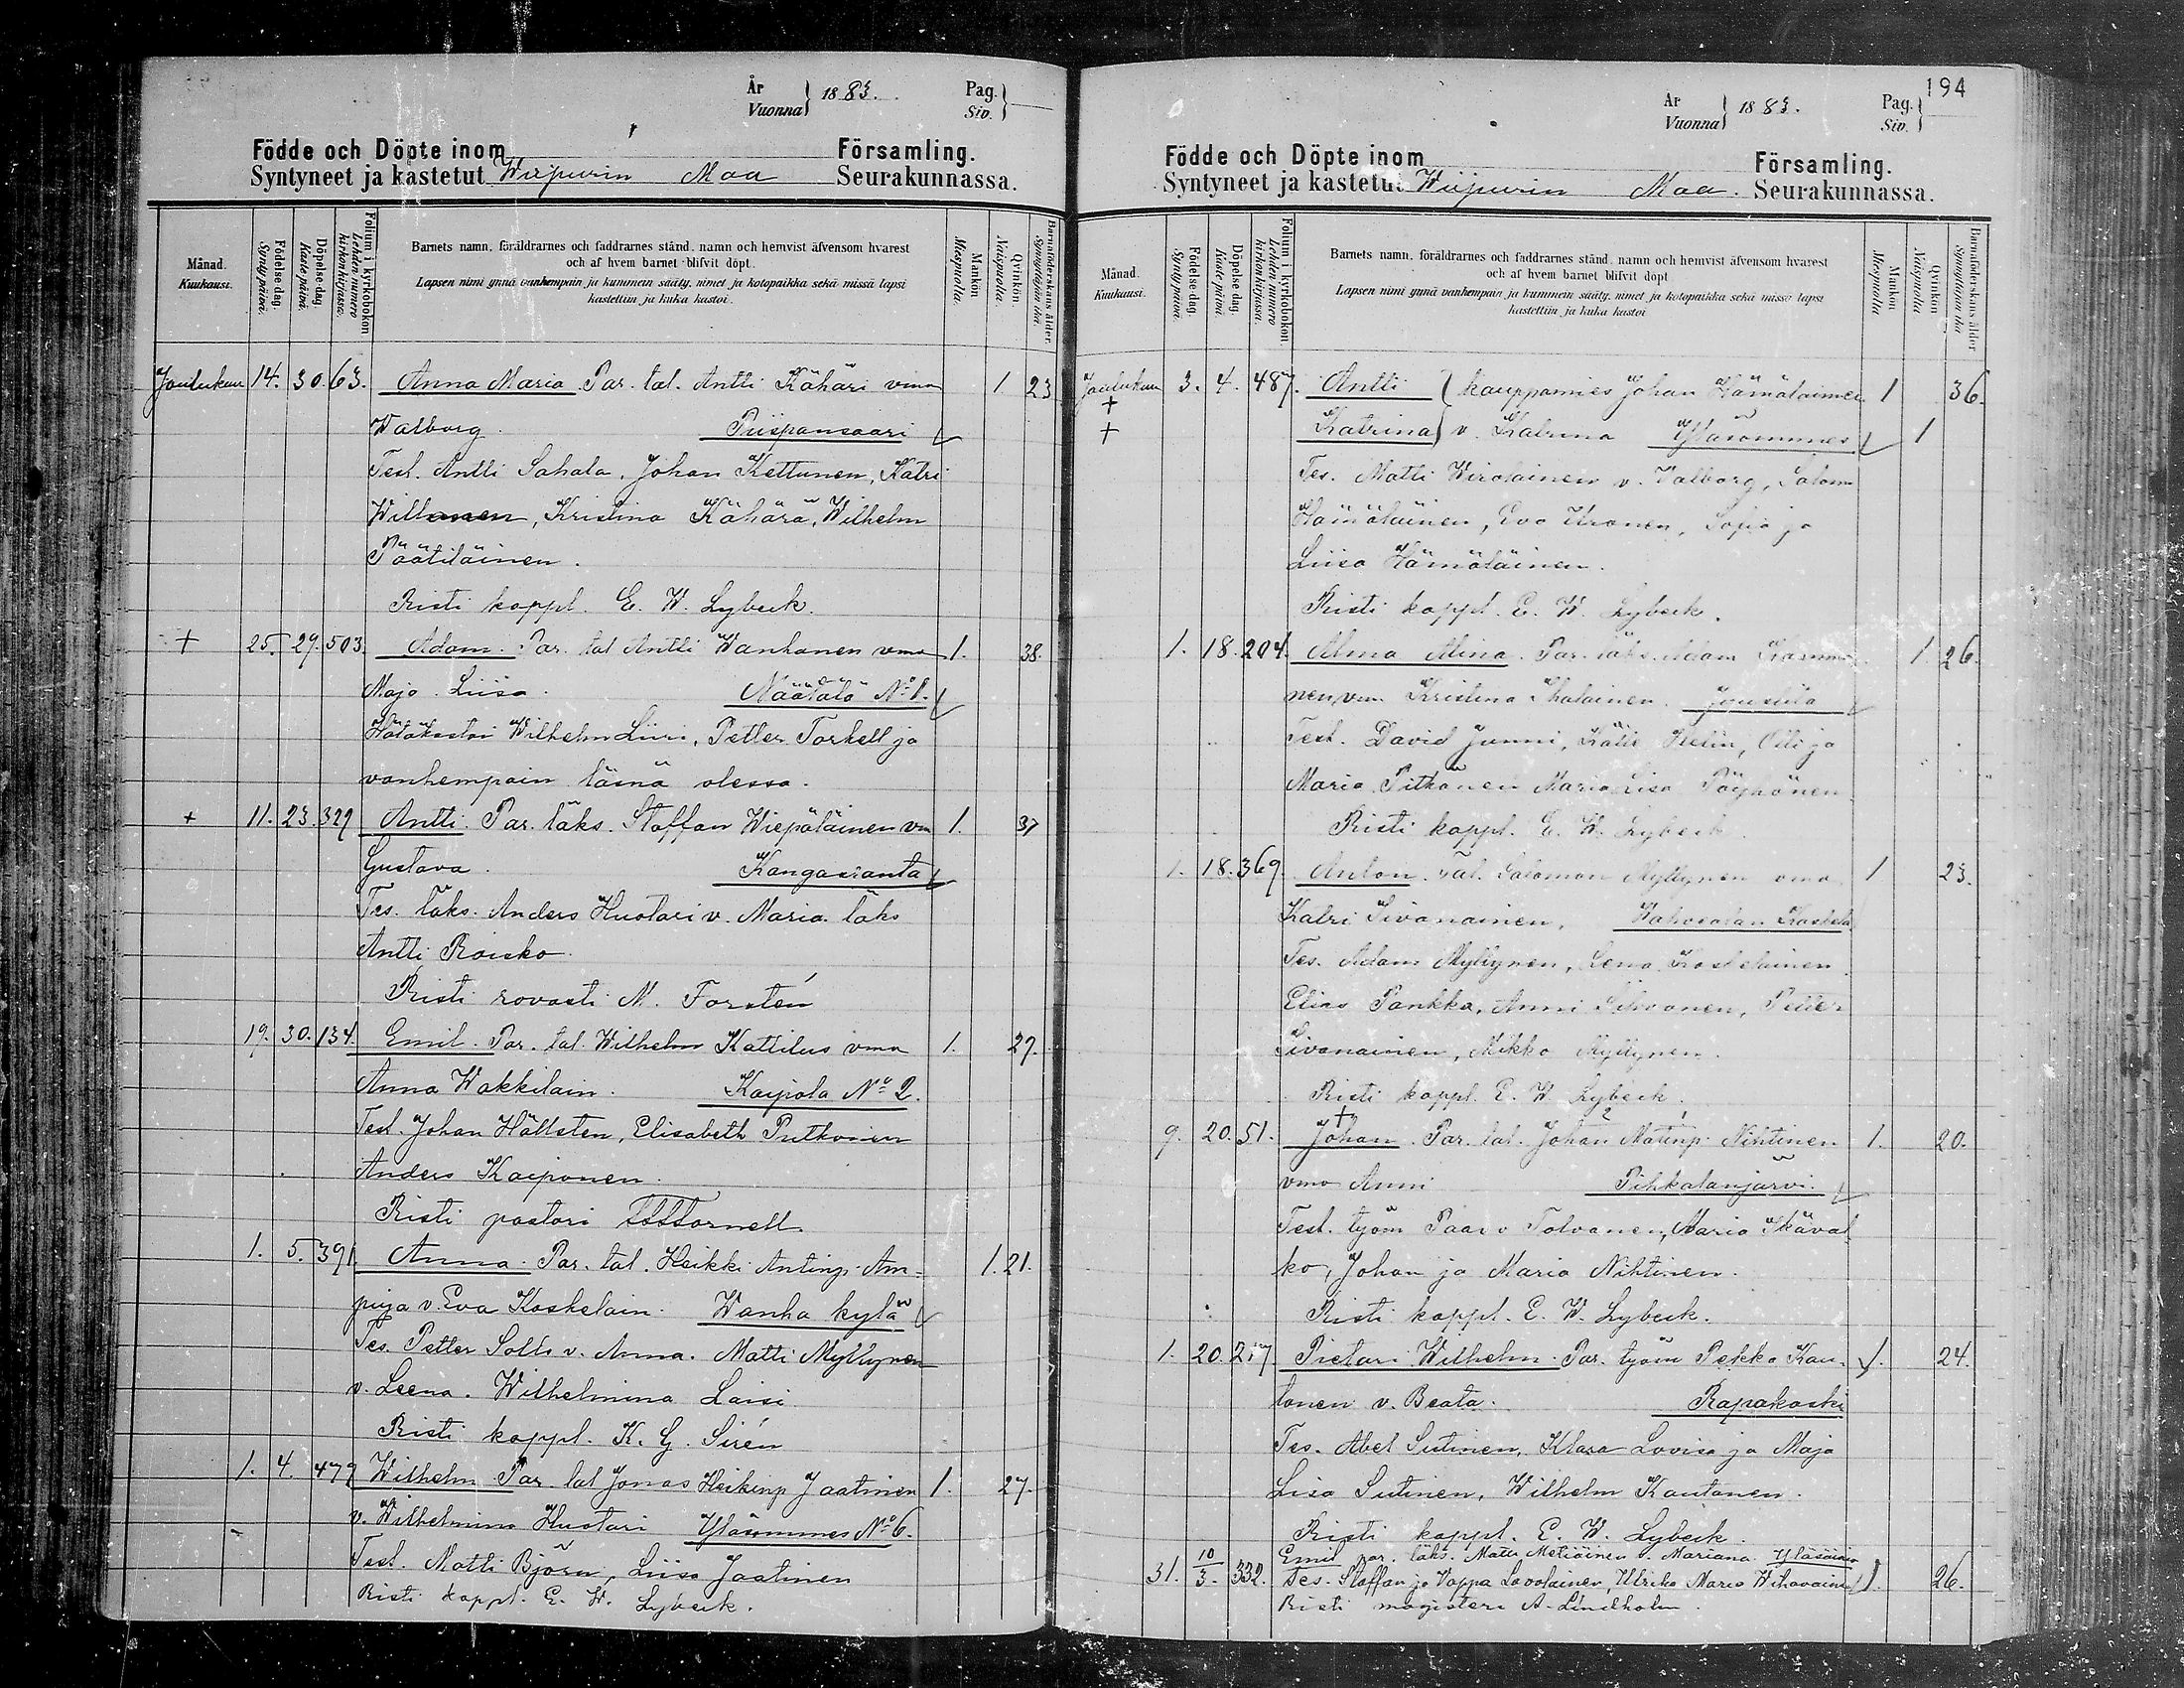 År
Vuonna } 1883.
Pag.
Siv. }
Födde och Döpte inom Församling.
Syntyneet ja kastetut Wiipurin Maa Seurakunnassa.
Månad.
Kuukausi.
Födelse dag.
Synty päivä.
Döpelse dag
Kaste päivä.
Folium i kyrkobokon
Lehden numero
kirkonkirjassa.
Barnets namn, föräldrarnes och faddrarnes stånd, namn och hemvist äfvensom hvarest
och af hvem barnet blifvit döpt.
Lapsen nimi ynnä vanhempain ja kummein sääty, nimet ja kotopaikka sekä missä lapsi
kastettiin ja kuka kastoi.
Mankön
Miespuolia.
Qvinkön.
Naispuolia.
Barnaföderskans ålder.
Synnyttäjän ikä.
Joulukuu 14. 30. 63. Anna Maria Par. tal. Antti Kähäri vmo 1. 23
Walborg. Piispansaari
Test. Antti Sahala, Johan Kettunen, Katri
Willanen, Kristina Kähärä, Wilhelm
Päätiläinen.
Risti kappl. E. W. Lybeck.
+ 25. 29. 503. Adam. Par. tal Antti Wanhanen vmo 1. 38.
Maja Liisa. Näätälä No 1.
Hätäkastoi Wilhelm Liiri, Petter Torkell ja
vanhempain läsnä olessa.
+ 11. 23. 329 Antti. Par. läks. Staffan Wiepäläinen vm 1. 37
Gustava. Kangasranta
Tes. läks. Anders Huotari v. Maria. läks
Antti Roisko.
Risti rovasti N. Forstén
19. 30. 134. Emil. Par. tal. Wilhelm Kattilus vmo 1. 27.
Anna Wakkilain. Kaipola No 2.
Test. Johan Hällsten, Elisabeth Putkonen
Anders Kaiponen.
Risti pastori Tornell.
1. 5. 391. Anna. Par. tal. Heikki Antinp. Am-
puja v. Eva Koskelain. Wanha kylä 1. 21.
Tes. Petter Solts v. Anna. Matti Myllynen
v. Leena. Wilhelmina Laisi
Risti kappl. K. G. Sirén
1. 4. 479 Wilhelm Par. tal Jonas Heikinp Jaatinen 1. 27.
v. Wilhelmina Huotari Yläsommes No 6.
Test. Matti Björn, Liisa Jaatinen
Risti kappl. E. W. Lybeck.
194
År
Vuonna } 1883.
Pag.
Siv. }
Födde och Döpte inom Församling.
Syntyneet ja kastetut Wiipurin Maa. Seurakunnassa.
Månad.
Kuukausi.
Födelse dag.
Synty päivä.
Döpelse dag.
Kaste päivä
Folium i kyrkobokon.
Lehden numero
kirkonkirjassa.
Barnets namn, föräldrarnes och faddrarnes stånd, namn och hemvist äfvensom hvarest
och af hvem barnet blifvit döpt
Lapsen nimi ynnä vanhempain ja kummein sääty, nimet ja kotopaikka sekä missä lapsi
kastettiin ja kuka kastoi
Mankön
Miespuolia
Qvinkön
Naispuolia
Barnaföderskans ålder
Synnyttäjän ikä
Joulukuu 3. 4. 487. Antti { kauppamies Johan Hämäläinen 1 36.
+
+ Katrina } v. Katrina Yläsommes 1
Tes. Matti Wirolainen v. Valborg, Salom
Hämäläinen, Eva Uronen, Sofia ja
Liisa Hämäläinen.
Risti kappl. E. W. Lybeck.
1. 18. 204. Alma Alina. Par. läks. Adam 1. 26.
nen vm. Kristina Ihalainen. Juustila
Test. David Junni, Kätie Helin, Olli ja
Maria Pitkänen Maria Lisa Pöyhönen
Risti kappl. E. W. Lybeck
1. 18. 369. Anton. Tal. Salomon Myllynen vmo 1 23.
Katri Sivonainen.
Tes. Adam Myllynen, Lena Koskelainen
Elias Pankka, Anni Silvonen, Petter
Sivonainen, Mikko Myllynen.
Risti kappl. E. W. Lybeck.
+
9. 20. 51. Johan. Par. tal. Johan Matinp. Nihtinen 1. 20.
vmo Anni Pihkalanjärvi.
Test. työm Paavo Tolvanen, Maria Skäval
ko, Johan ja Maria Nihtinen.
Risti kappl. E. W. Lybeck.
1. 20. 217 Pietari Wilhelm. Par. työm Pekko Kau- 1. 24.
tonen v. Beata. Rapakoski
Tes. Abel Sutinen, Klara Lovisa ja Maja
Lisa Sutinen, Wilhelm Kautonen.
Risti kappl. E. W. Lybeck
31. 10/3. 332. Emil par. läks. Matti Metiäinen v. Mariana.
Tes. Staffan ja Vappa Lavolainen, Ulrika Maria Wihavainen 1. 26.
Risti magisteri A. Lindholm.